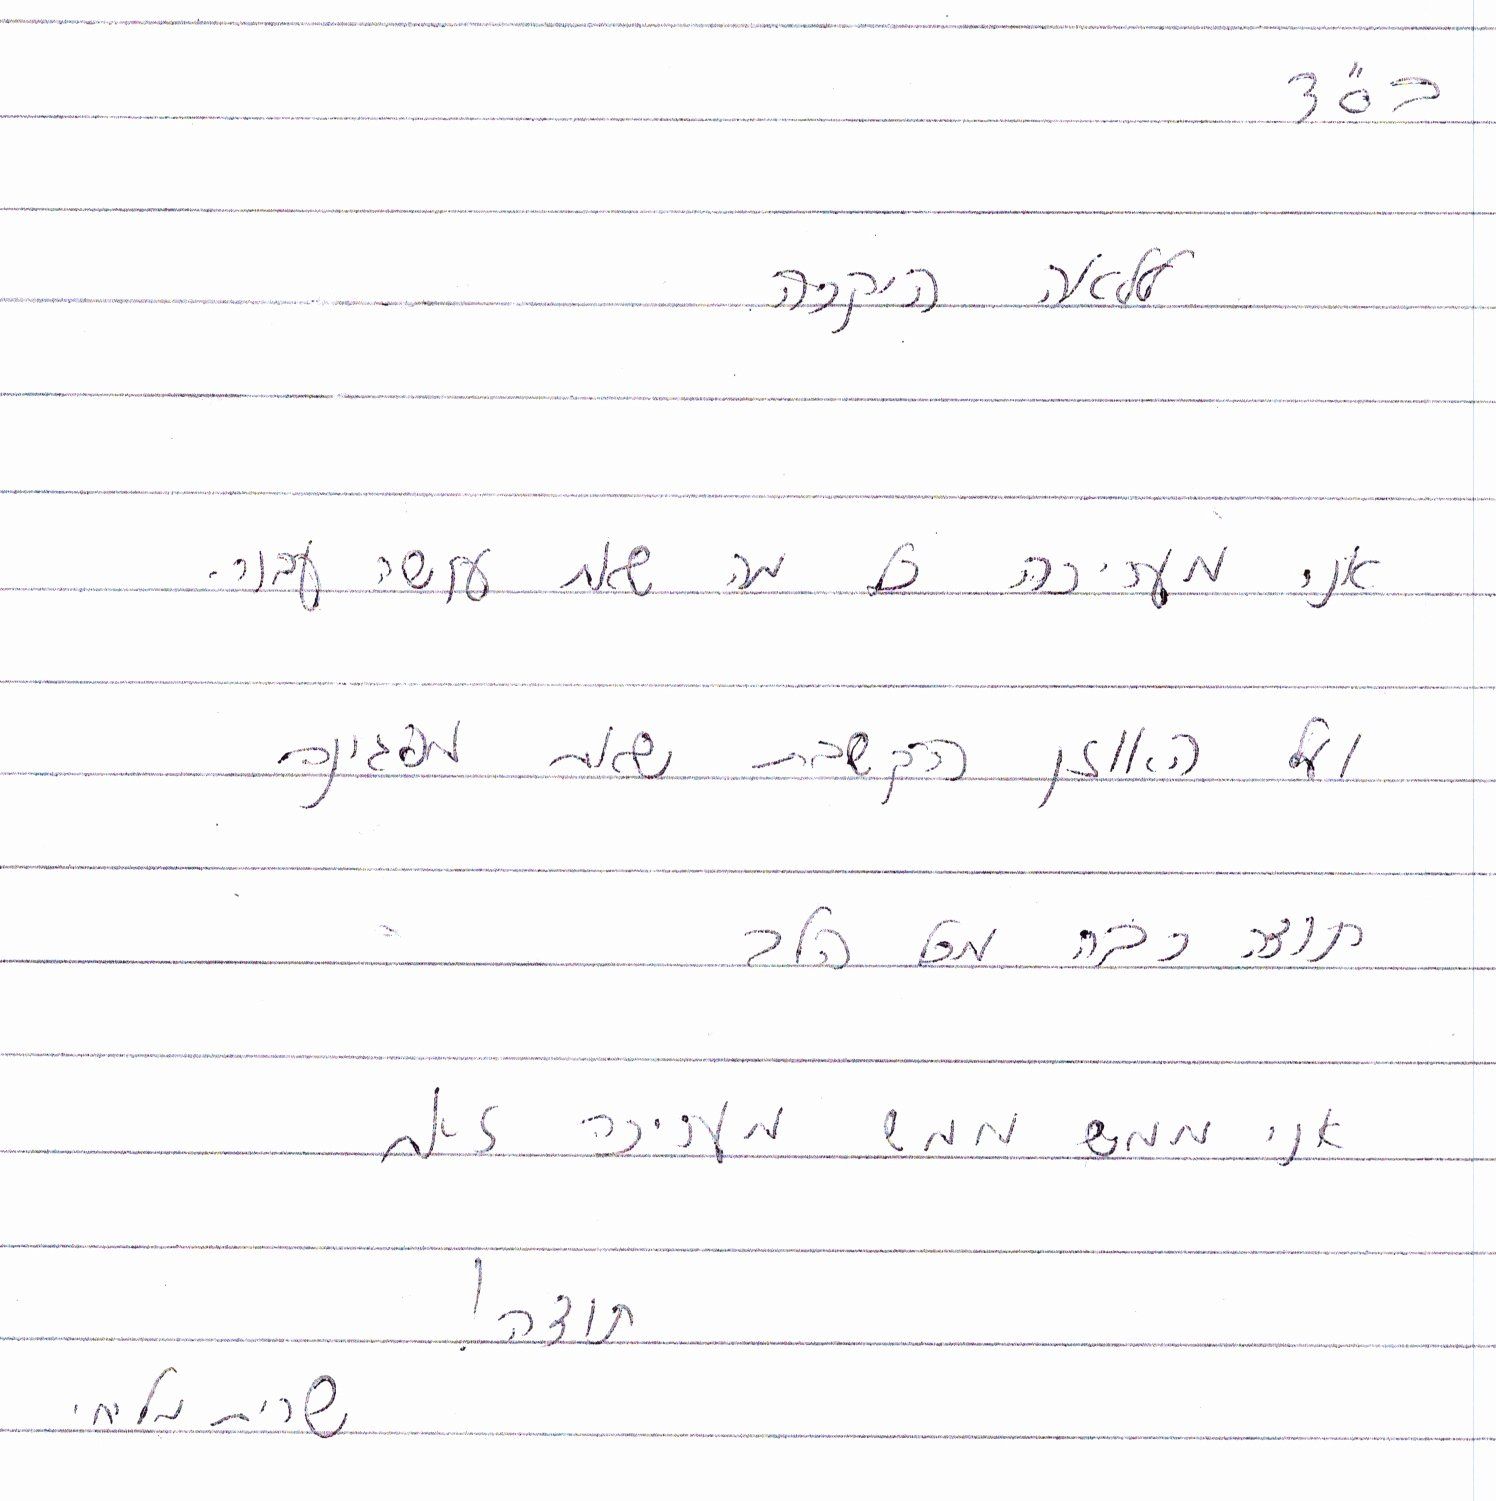 בס"ד
לאה היקרה
אני מעריכה כל מה שאת עושה עבורי.
ועל האוזן הקשבת שאת מפגינה
תודה רבה מכל הלב
אני ממש ממש מעריכה זאת
תודה!
שרית מליחי